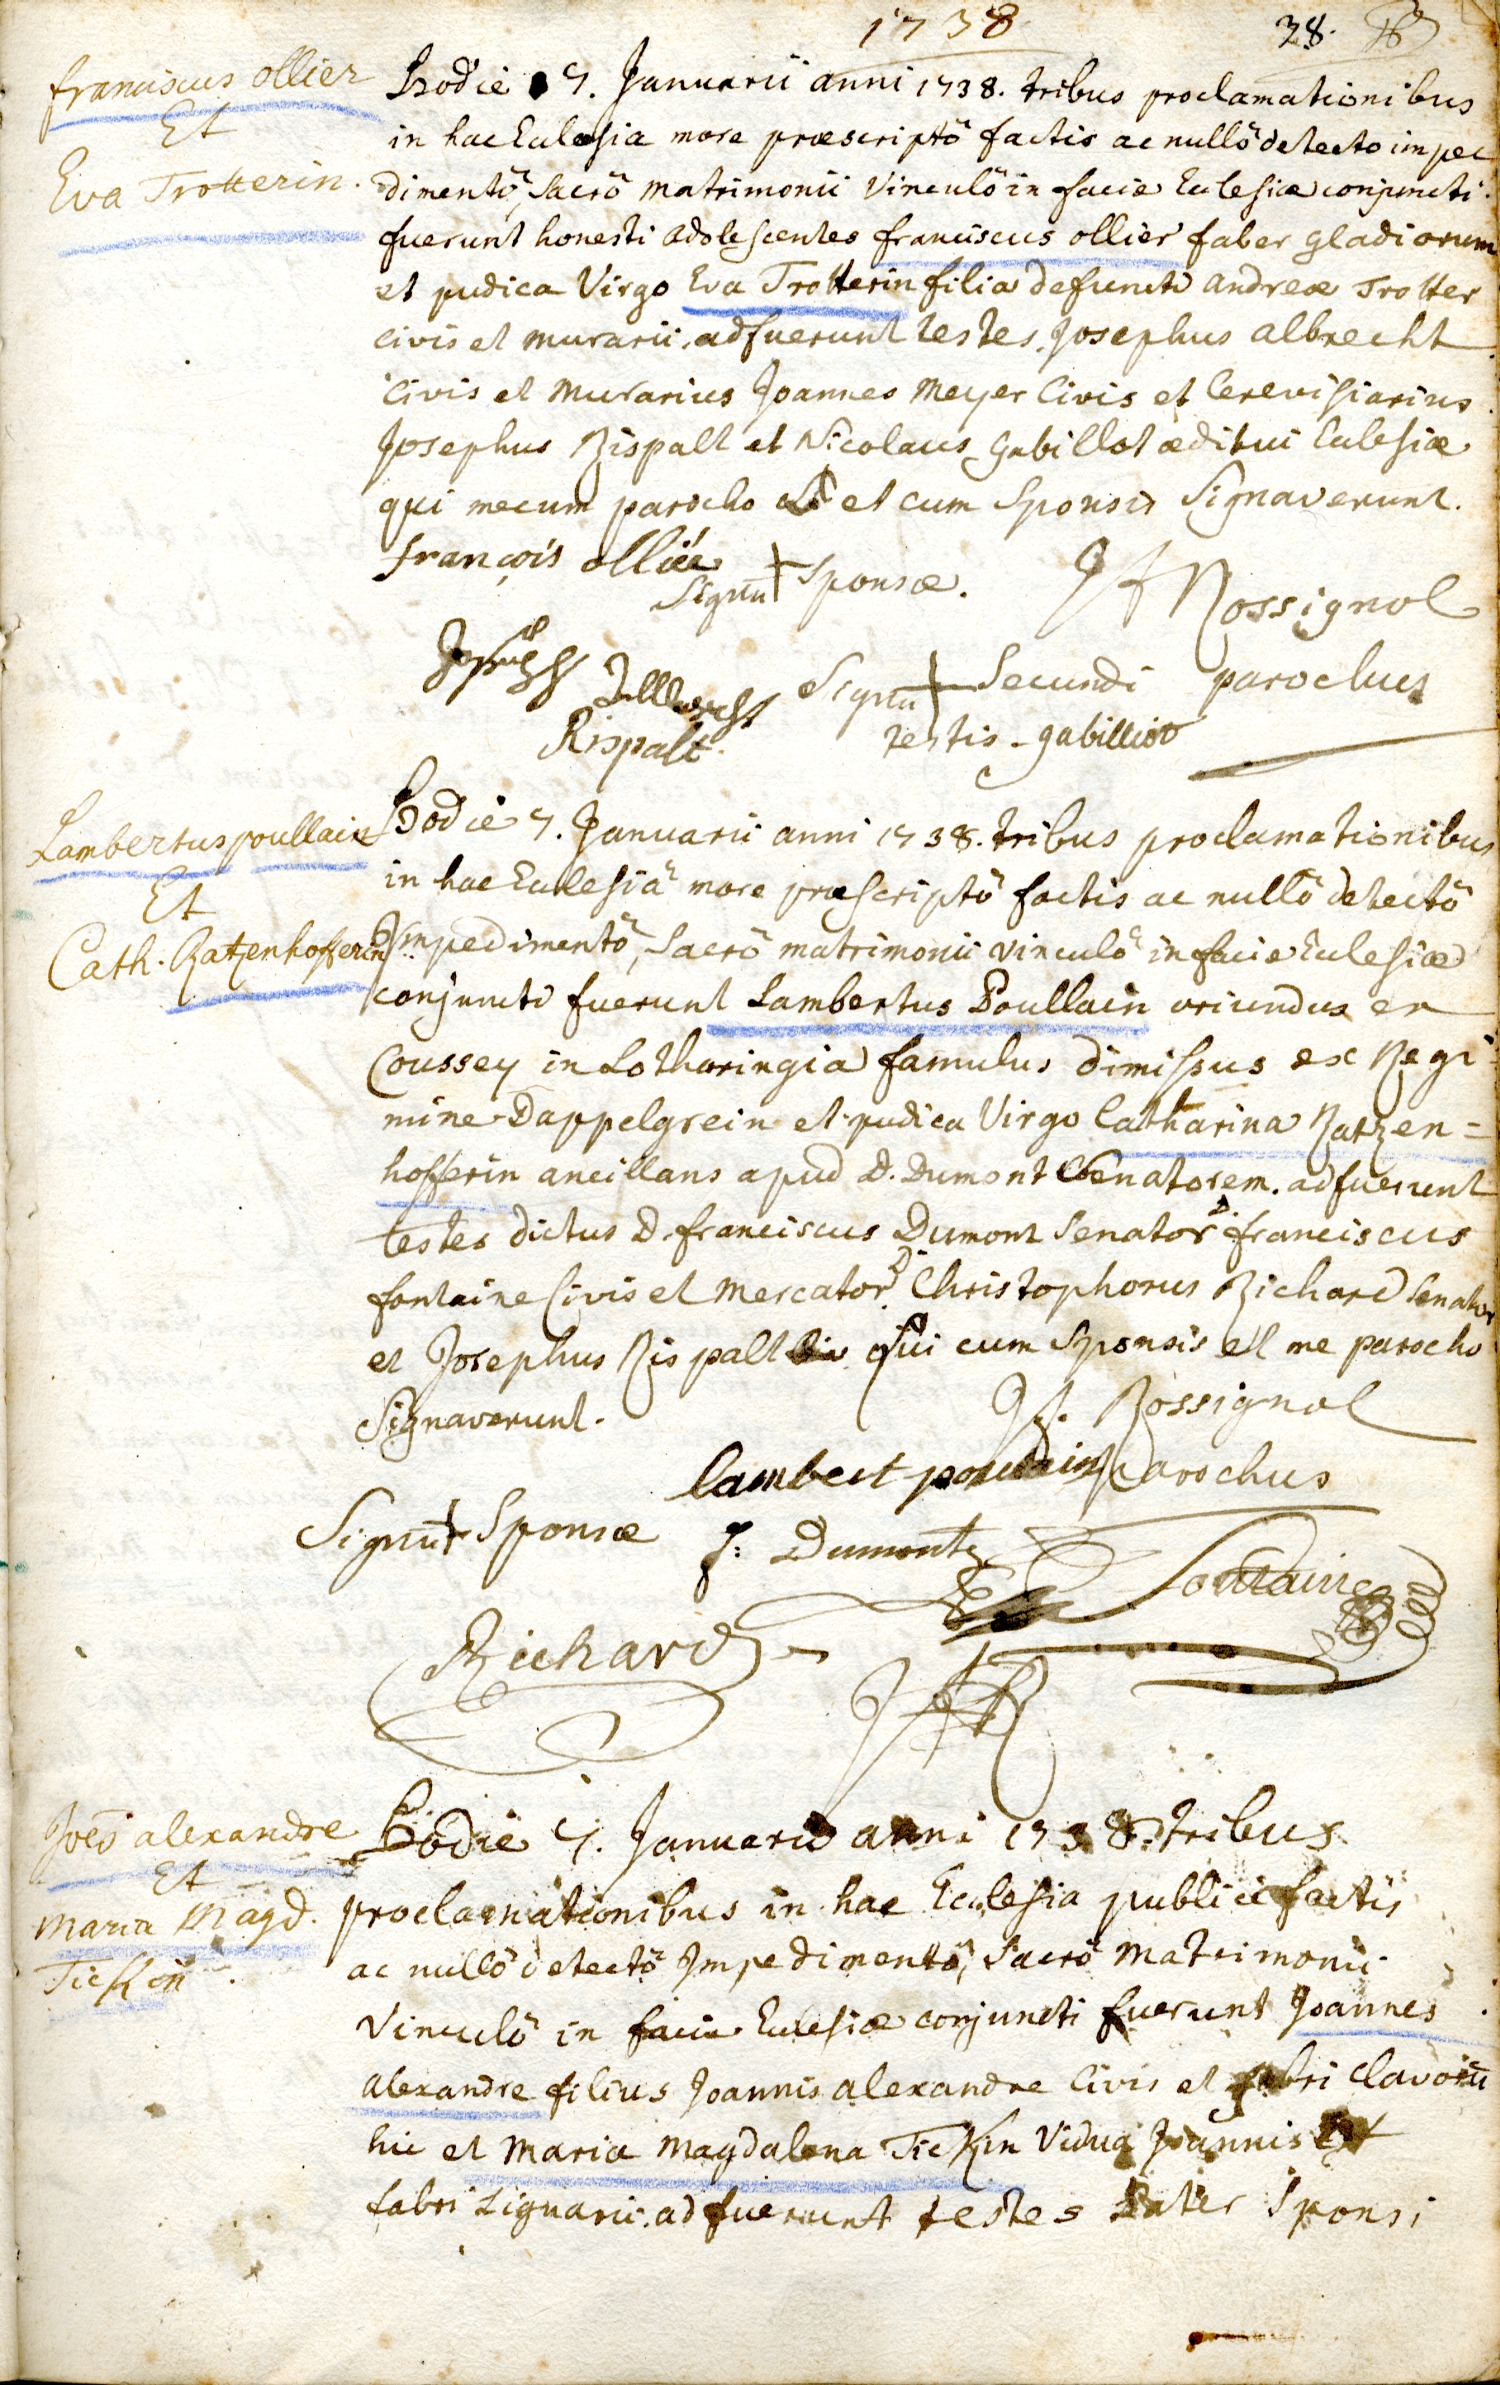 1738
28.
franciscus ollier
Et
Eva Trotterin.
Hodie 7. Januarii anni 1738. tribus proclamationibus
in hac Eclesia more præscriptô factis ac nullô detecto impe
dimentô, sacrô matrimonii vinculô in facie Eclesiæ conjuncti
fuerunt honesti adolescentes franciscus ollier faber gladiorum
et pudica Virgo Eva Trotterin filia defuncti andreæ Trotter
civis et murarii. adfuerunt testes Josephus albrecht
civis et murarius Joannes Meyer Civis et Cerevisiarius
Josephus Rispalt et Nicolaus Gabillot æditui Eclesiæ
qui mecum parocho et cum Sponsis Signaverunt.
françois olliée
Signū Sponsæ.
J F Rossignol
parochus
Joseph
Rispalt
Signū Secundi
testis - gabilliot
Lambertus poullain
Et
Cath. Ratzenhofferin
Hodie 7. Januarii anni 1738. tribus proclamationibus
in hac Eclesiâ more præscriptô factis ac nullô detectô
Impedimentô, Sacrô matrimonii vinculô in facie Eclesiæ
conjuncti fuerunt Lambertus Poullain oriundus ex
Coussey in Lotharingia famulus dimissus ex Regi
mine Dappelgrein et pudica Virgo Catharina Ratzen=
hofferin ancillans apud D. Dumont Senatorem. adfuerunt
testes dictus D. franciscus Dumont Senator D. franciscus
fontaine Civis et mercator D. Christophorus Richard Senator
et Josephus Rispalt qui cum Sponsis et me parocho
Signaverunt.
J f. Rossignol
Parochus
lambert poullain
Signū Sponsæ
f: Dumont
fontaine
Richard
JR
Joēs alexandre
Et
Maria Magd.
Tickin
Hodie 7. Januarii anni 1738. tribus
proclamationibus in hac Ecclesia publice factis
ac nullô detectô Impedimentô, Sacrô Matrimonii
Vinculô in facie Eclesiæ conjuncti fuerunt Joannes
alexandre filius Joannis alexandre Civis et fabri clavorū
hic et Maria Magdalena Tickin Vidua Joannis
fabri Lignarii. adfuerunt testes Pater Sponsi